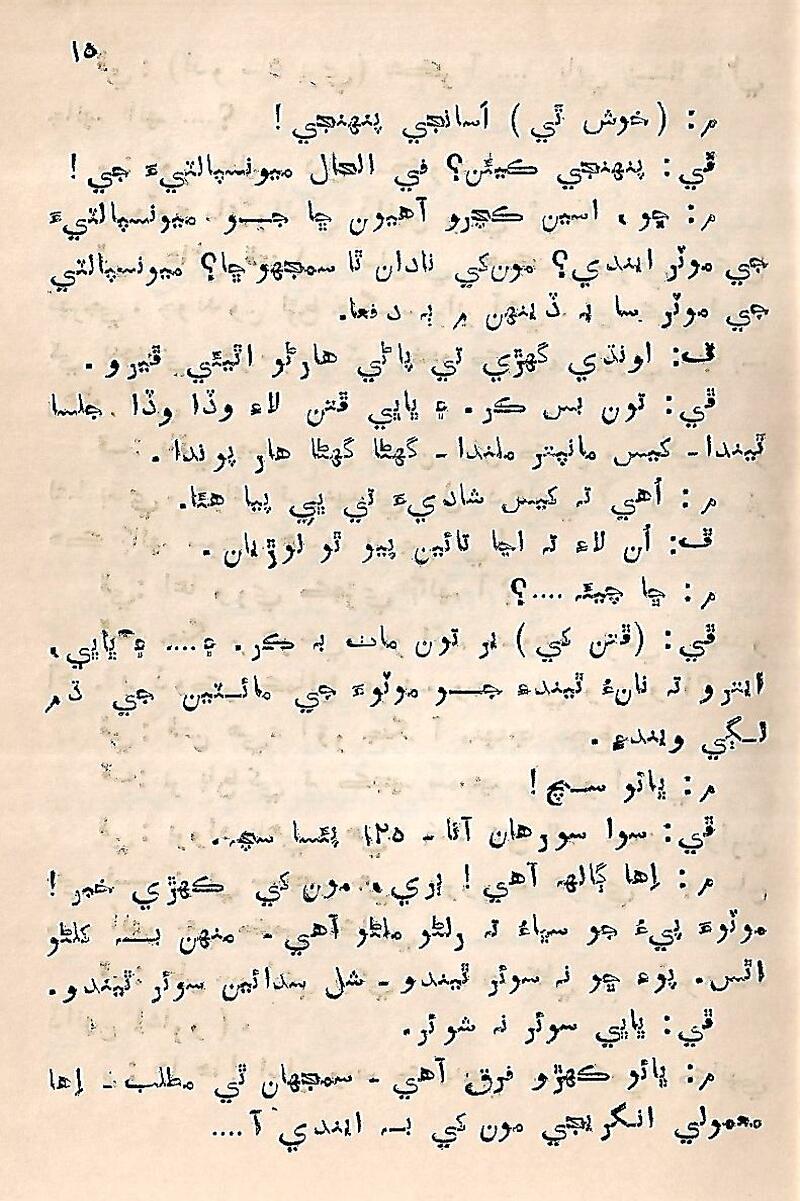 ١٥
م: (خوش ٿي) اَسانجي پنهنجي!
ڦي: پنهنجي ڪيئن؟ في الحال ميونسپالٽيءَ جي!
م: ڇو، اسين ڪچرو آهيون ڇا جــو ميونسپالٽيءَ
جي موٽر ايندي؟ مون‌کي نادان ٿا سمجهو ڇا؟ ميونسپالٽي
جي موٽر سا به ڏينهن ۾ ٻه دفعا.
ف: اونڌي گهڙي تي پاڻي هارڻو اٿيئي ڦيرو.
ڦي: تون بس ڪر. ۽ ڀاڀي ڦتن لاءِ وڏا وڏا جلسا
ٿيندا۔ کيس مانپتر ملندا۔ گهڻا گهڻا هار پوندا.
م: اُهي ته کيس شاديءَ تي ڀي پيا هئا.
ف: اُن لاءِ ته اڃا تائين پيو ٿو لوڙيان.
م: ڇا چيئه ....؟
ڦي: (ڦتن کي) يار تون مات به ڪر. ۽.... ۽ ڀاڀي،
ايترو ته نانءُ ٿيندءِ جــو موٽوءَ جي مائٽين جي دم
لــڳي ويندءِ.
م: ڀائو ســچ!
ڦي: سوا سورهان آنا۔ ١٢٥ پئسا سچ.
م: اِها ڳالهه آهي! اڙي، مون کي ڪهڙي خبر!
موٽوءَ پيءُ جو سڀاءُ ته رلڻو ملڻو آهي۔ منهن بــه کلڻو
اٿس. پوءِ ڇو نه سوئر ٿيندو۔ شل سدائين سوئر ٿيندو.
ڦي: ڀاڀي سوئر نه شوئر.
م: ڀائو ڪهڙو فرق آهي۔ سمجهان ٿي مطلب۔ اِها
معمولي انگريجي مون کي بــه ايندي آ....